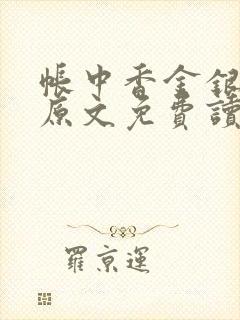 帳中香金銀
原文免費讀
羅京運